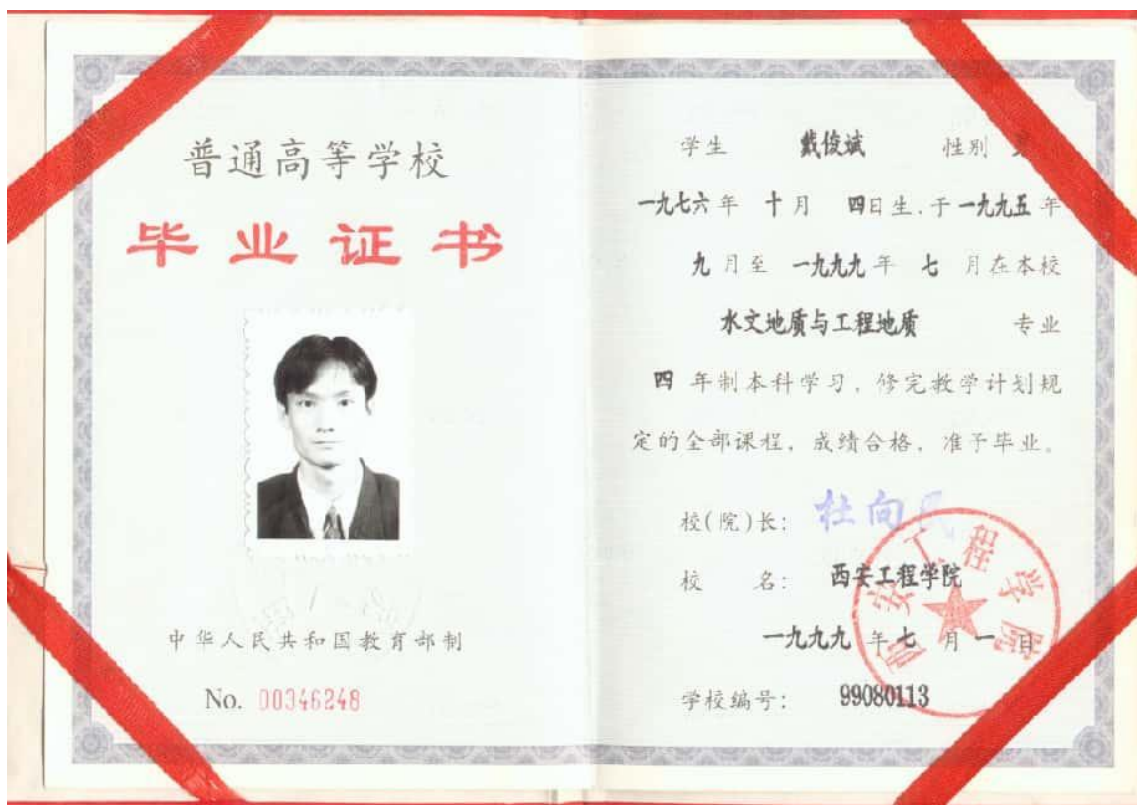 普通高等学校
毕业证书
中华人民共和国教育部制
No. 00346248
学生 戴俊斌 性别
一九七六年 十月 四日生,于一九九五年
九月至 一九九九年 七 月在本校
水文地质与工程地质 专业
四 年制本科学习,修完教学计划规
定的全部课程,成绩合格,准予毕业。
校(院)长: 杜向民
校 名: 西安工程学院
一九九九 年 七 月 一 日
学校编号: 99080113
西安工程学院